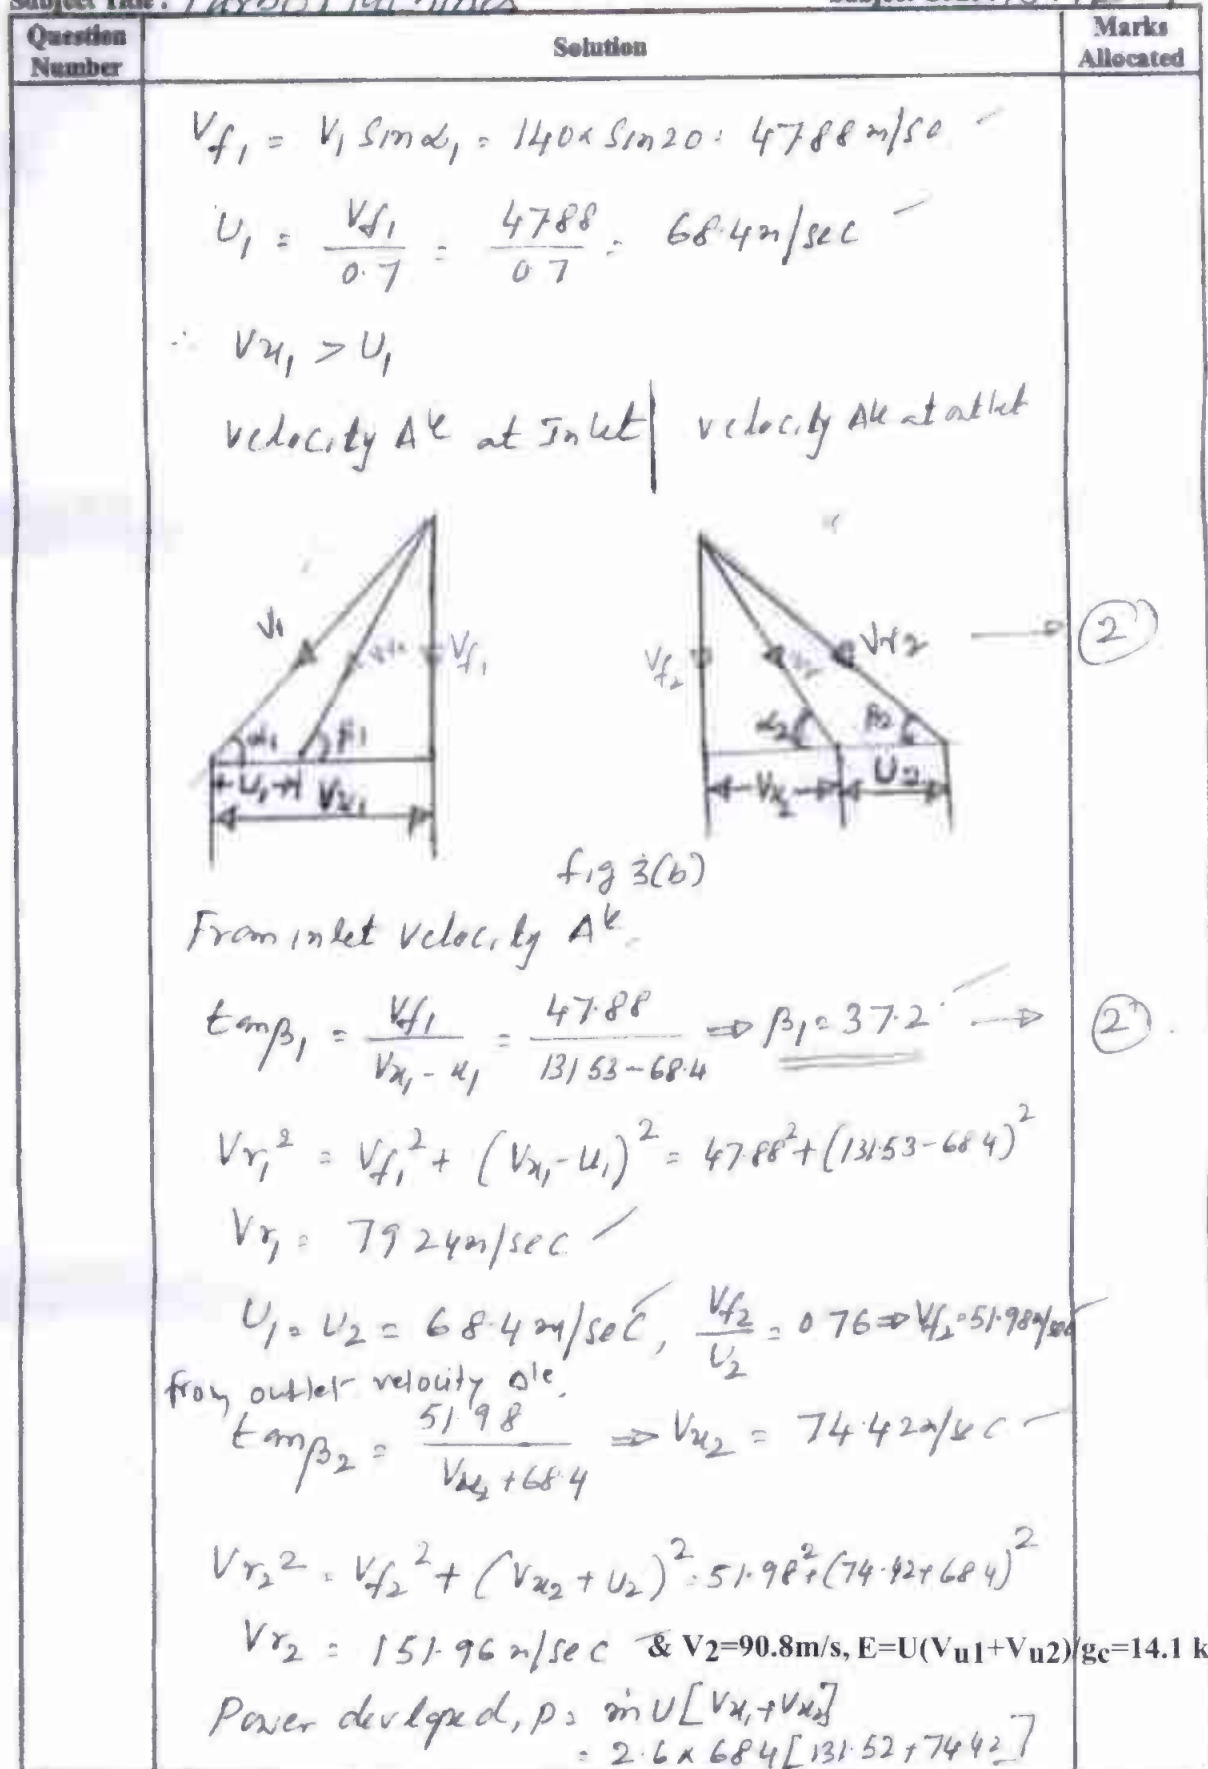 Subject Title :
Question Number
Solution
Marks Allocated
Vf₁ = V₁ Sinα₁ = 140 x Sin20 = 4788 m/se
U₁ = Vf₁ / 0.7 = 4788 / 0.7 = 68.4 m/sec
∴ Vx₁ > U₁
velocity Δle at Inlet | velocity Δle at outlet
V₁ Vf₁ Vf₂ Vr2 → 2
α₁ β₁ α₂ β₂
U₁ Vx₁ Vx₂ U₂
fig 3(b)
From inlet velocity Δle
tanβ₁ = Vf₁ / (Vx₁ - u₁) = 47.88 / (131.53 - 68.4) ⇒ β₁ = 37.2° → 2
Vr₁² = Vf₁² + (Vx₁ - U₁)² = 47.88² + (131.53 - 68.4)²
Vr₁ = 79.24 m/sec
U₁ = U₂ = 68.4 m/sec, Vf₂ / U₂ = 0.76 ⇒ Vf₂ = 51.98 m/sec
from outlet velocity Δle.
tanβ₂ = 51.98 / (Vx₂ + 68.4) ⇒ Vx₂ = 74.42 m/sec
Vr₂² = Vf₂² + (Vx₂ + U₂)² = 51.98² + (74.42 + 68.4)²
Vr₂ = 151.96 m/sec & V2=90.8m/s, E=U(Vu1+Vu2)/gc=14.1 k
Power devloped, P = ṁU[Vx₁ + Vx₂]
= 2.6 x 68.4 [131.52 + 74.42]